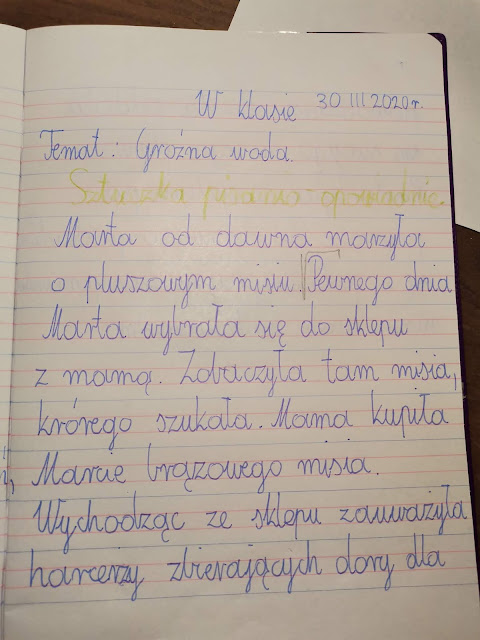 W klasie 30 III 2020 r.
Temat: Groźna woda.
Sztuczka
Marta od dawna marzyła
o pluszowym misiu. Pewnego dnia
Marta wybrała się do sklepu
z mamą. Zobaczyła tam misia,
którego szukała. Mama kupiła
Marcie brązowego misia.
Wychodząc ze sklepu zauważyła
harcerzy zbierających dary dla